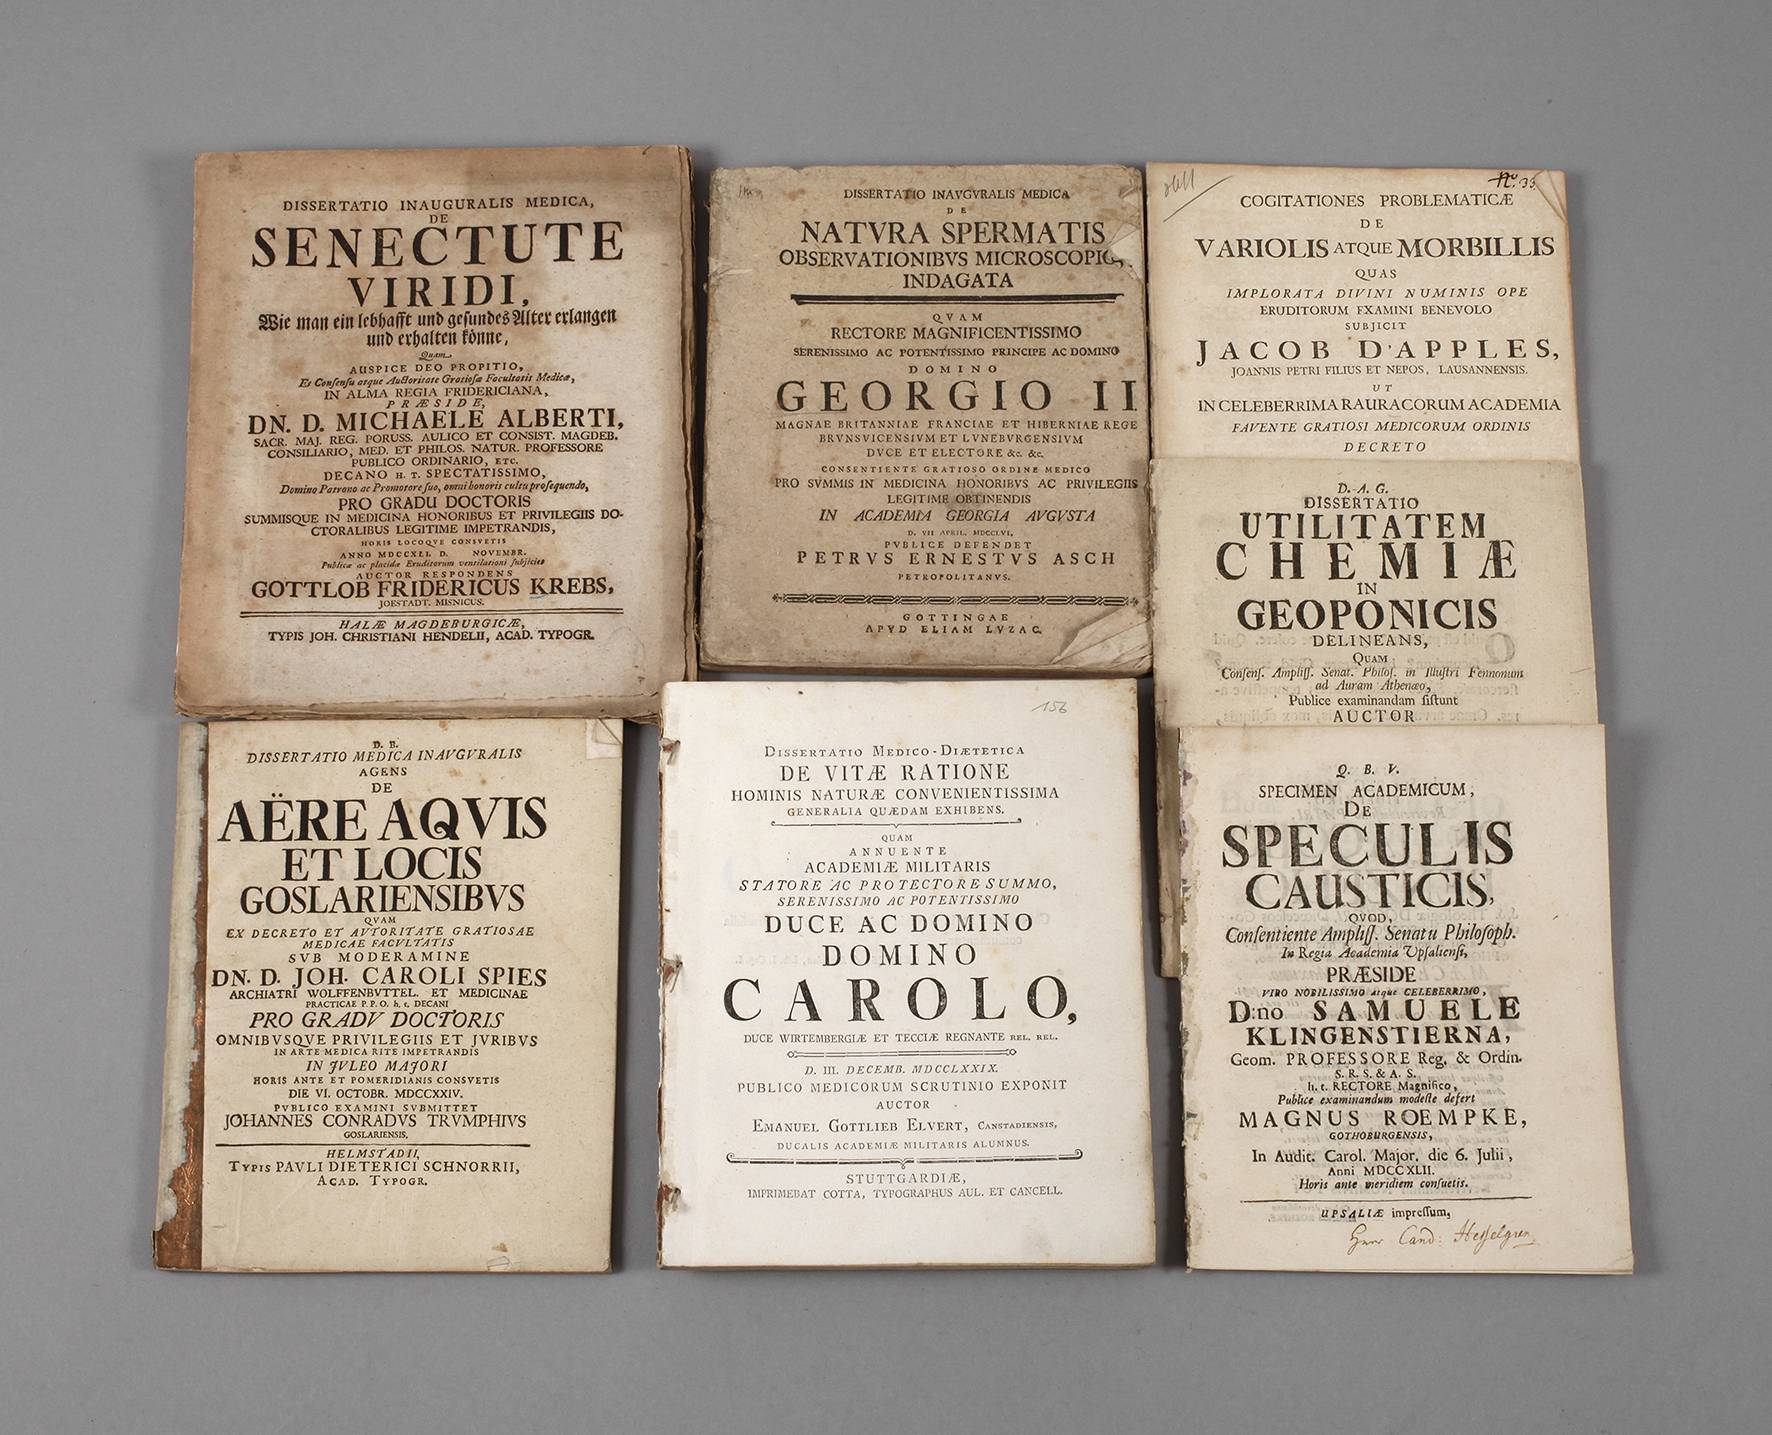 DISSERTATIO INAUGURALIS MEDICA,
DE
SENECTUTE
VIRIDI,
Wie man ein lebhafft und gesundes Alter erlangen
und erhalten könne,
Quam
AUSPICE DEO PROPITIO,
Et Consensu atque Auctoritate Gratiosæ Facultatis Medicæ,
IN ALMA REGIA FRIDERICIANA,
PRÆSIDE,
DN. D. MICHAELE ALBERTI,
SACR. MAJ. REG. PORUSS. AULICO ET CONSIST. MAGDEB.
CONSILIARIO, MED. ET PHILOS. NATUR. PROFESSORE
PUBLICO ORDINARIO, ETC.
DECANO H. T. SPECTATISSIMO,
Domino Patrono ac Promotore suo, omni honoris cultu prosequendo,
PRO GRADU DOCTORIS
SUMMISQUE IN MEDICINA HONORIBUS ET PRIVILEGIIS DO-
CTORALIBUS LEGITIME IMPETRANDIS,
HORIS LOCOQVE CONSVETIS
ANNO MDCCXLI. D. NOVEMBR.
Publicæ ac placidæ Eruditorum ventilationi subjiciet
AUCTOR RESPONDENS
GOTTLOB FRIDERICUS KREBS,
JOESTADT. MISNICUS.
HALÆ MAGDEBURGICÆ,
TYPIS JOH. CHRISTIANI HENDELII, ACAD. TYPOGR.
DISSERTATIO INAVGVRALIS MEDICA
DE
NATVRA SPERMATIS
OBSERVATIONIBVS MICROSCOPIC
INDAGATA
QVAM
RECTORE MAGNIFICENTISSIMO
SERENISSIMO AC POTENTISSIMO PRINCIPE AC DOMINO
DOMINO
GEORGIO II
MAGNAE BRITANNIAE FRANCIAE ET HIBERNIAE REGE
BRVNSVICENSIVM ET LVNEBVRGENSIVM
DVCE ET ELECTORE &c. &c.
CONSENTIENTE GRATIOSO ORDINE MEDICO
PRO SVMMIS IN MEDICINA HONORIBVS AC PRIVILEGIIS
LEGITIME OBTINENDIS
IN ACADEMIA GEORGIA AVGVSTA
D. VII APRIL. MDCCLVI,
PVBLICE DEFENDET
PETRVS ERNESTVS ASCH
PETROPOLITANVS.
GOTTINGAE
APVD ELIAM LVZAC.
No. 33
COGITATIONES PROBLEMATICÆ
DE
VARIOLIS ATQUE MORBILLIS
QUAS
IMPLORATA DIVINI NUMINIS OPE
ERUDITORUM EXAMINI BENEVOLO
SUBJICIT
JACOB D'APPLES,
JOANNIS PETRI FILIUS ET NEPOS, LAUSANNENSIS.
UT
IN CELEBERRIMA RAURACORUM ACADEMIA
FAVENTE GRATIOSI MEDICORUM ORDINIS
DECRETO
D. A. G.
DISSERTATIO
UTILITATEM
CHEMIÆ
IN
GEOPONICIS
DELINEANS,
QUAM
Consens. Ampliss. Senat. Philos. in Illustri Fennonum
ad Auram Athenæo,
Publice examinandam sistunt
AUCTOR
D. B.
DISSERTATIO MEDICA INAVGVRALIS
AGENS
DE
AËRE AQVIS
ET LOCIS
GOSLARIENSIBVS
QVAM
EX DECRETO ET AVTORITATE GRATIOSAE
MEDICAE FACVLTATIS
SVB MODERAMINE
DN. D. JOH. CAROLI SPIES
ARCHIATRI WOLFFENBVTTEL. ET MEDICINAE
PRACTICAE P. P. O. h. t. DECANI
PRO GRADV DOCTORIS
OMNIBVSQVE PRIVILEGIIS ET JVRIBVS
IN ARTE MEDICA RITE IMPETRANDIS
IN JVLEO MAJORI
HORIS ANTE ET POMERIDIANIS CONSVETIS
DIE VI. OCTOBR. MDCCXXIV.
PVBLICO EXAMINI SVBMITTET
JOHANNES CONRADVS TRVMPHIVS
GOSLARIENSIS.
HELMSTADII,
TYPIS PAVLI DIETERICI SCHNORRII,
ACAD. TYPOGR.
156
DISSERTATIO MEDICO-DIÆTETICA
DE VITÆ RATIONE
HOMINIS NATURÆ CONVENIENTISSIMA
GENERALIA QUÆDAM EXHIBENS.
QUAM
ANNUENTE
ACADEMIÆ MILITARIS
STATORE AC PROTECTORE SUMMO,
SERENISSIMO AC POTENTISSIMO
DUCE AC DOMINO
DOMINO
CAROLO,
DUCE WIRTEMBERGIÆ ET TECCIÆ REGNANTE REL. REL.
D. III. DECEMB. MDCCLXXIX.
PUBLICO MEDICORUM SCRUTINIO EXPONIT
AUCTOR
EMANUEL GOTTLIEB ELVERT, CANSTADIENSIS,
DUCALIS ACADEMIÆ MILITARIS ALUMNUS.
STUTTGARDIÆ,
IMPRIMEBAT COTTA, TYPOGRAPHUS AUL. ET CANCELL.
Q. B. V.
SPECIMEN ACADEMICUM,
DE
SPECULIS
CAUSTICIS,
QVOD,
Consentiente Ampliss. Senatu Philosoph.
In Regia Academia Upsaliensi,
PRÆSIDE
VIRO NOBILISSIMO atque CELEBERRIMO,
D:no SAMUELE
KLINGENSTIERNA,
Geom. PROFESSORE Reg. & Ordin.
S. R. S. & A. S.
h. t. RECTORE Magnifico,
Publice examinandum modeste defert
MAGNUS ROEMPKE,
GOTHOBURGENSIS,
In Audit. Carol. Major. die 6. Julii,
Anni MDCCXLII.
Horis ante meridiem consuetis.
UPSALIÆ impressum,
Herr Cand: Hesselgren